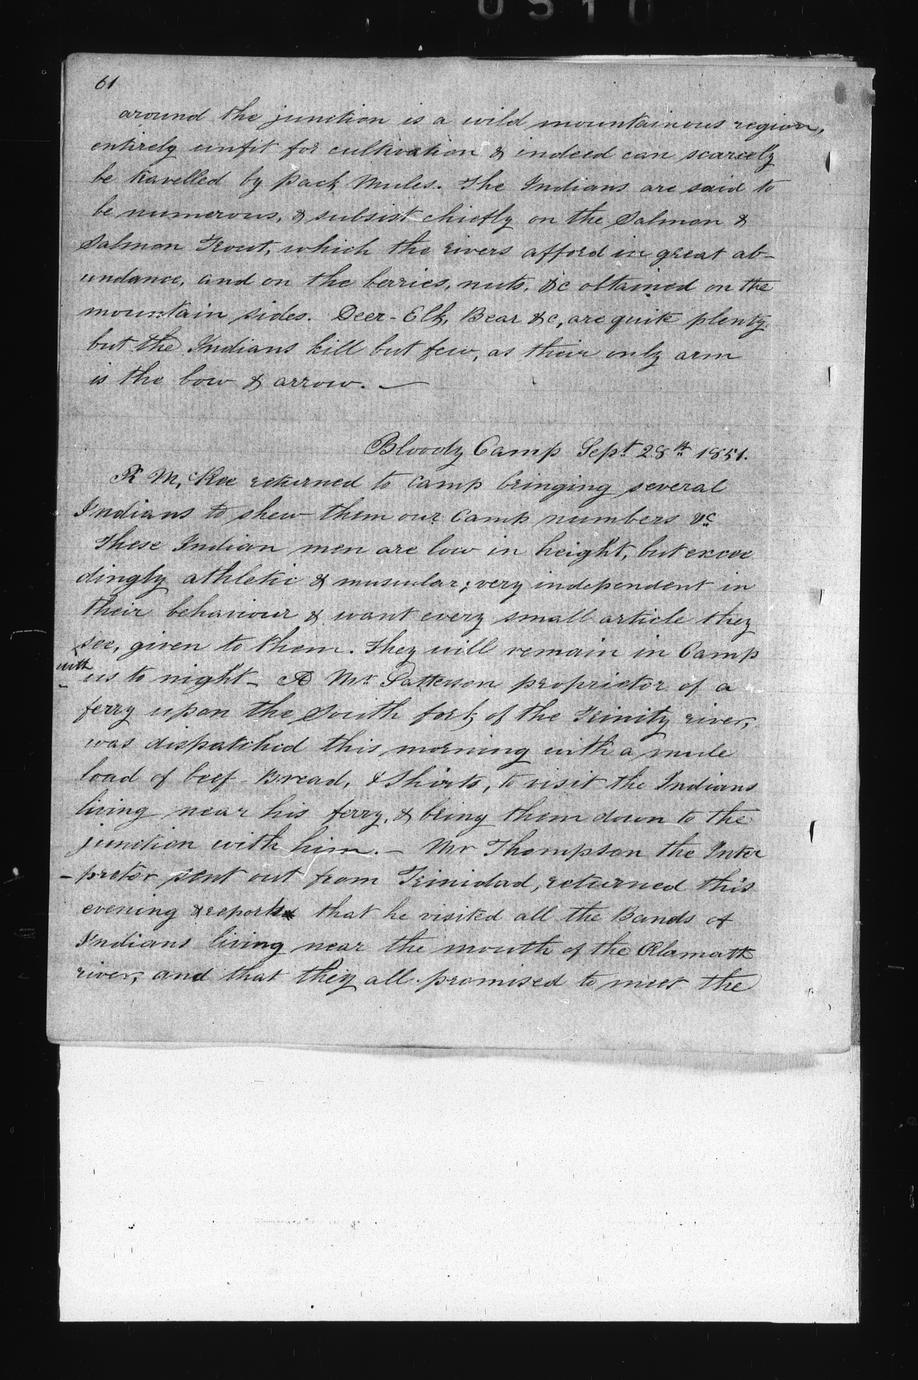 0510
61
around the junction is a wild mountainous region,
entirely unfit for cultivation & indeed can scarcely
be travelled by pack mules. The Indians are said to
be numerous, & subsist chiefly on the Salmon &
Salmon Trout, which the rivers afford in great ab-
undance, and on the berries, nuts, &c obtained on the
mountain sides. Deer - Elk, Bear &c, are quite plenty
but the Indians kill but few, as their only arm
is the bow & arrow. —
Bloody Camp Sept 28th 1851.
R McKee returned to camp bringing several
Indians to shew them our Camp numbers &c
These Indian men are low in height, but excee
dingly athletic & muscular; very independent in
their behaviour & want every small article they
see, given to them. They will remain in Camp
with
us to night - A Mr Patterson proprietor of a
ferry upon the South fork of the Trinity river,
was dispatched this morning with a mule
load of beef - Bread, & Shirts, to visit the Indians
living near his ferry, & bring them down to the
junction with him. — Mr Thompson the Inter
- preter sent out from Trinidad, returned this
evening & reports that he visited all the Bands of
Indians living near the mouth of the Klamath
river, and that they all promised to meet the